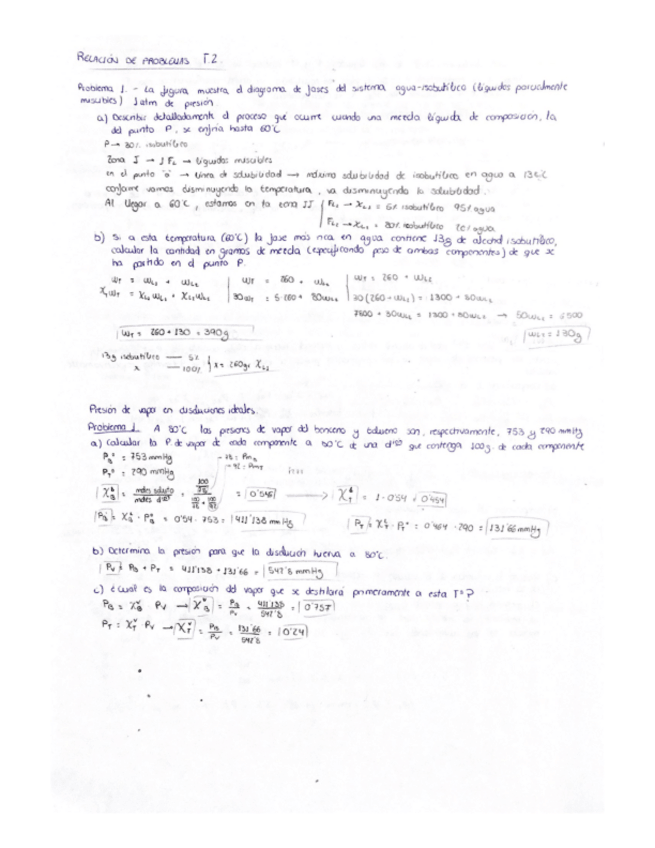 RELACIÓN DE PROBLEMAS T.2.
Problema 1.- La figura muestra el diagrama de fases del sistema agua-isobutílico (líquidos parcialmente
miscibles) 1 atm de presión.
a) Describir detalladamente el proceso que ocurre cuando una mezcla líquida de composición, la
del punto P, se enfría hasta 60°C
P → 30% isobutílico
Zona I → 1 FL → líquidos miscibles
en el punto "a" → línea de solubilidad → máxima solubilidad de isobutílico en agua a
conforme vamos disminuyendo la temperatura, va disminuyendo la solubilidad.
Al llegar a 60°C, estamos en la zona II FL1 → XL1 = 5% isobutílico 95% agua
FL2 → XL2 = 80% isobutílico 20% agua
b) Si a esta temperatura (60°C) la fase más rica en agua contiene 13g de alcohol isobutílico,
calcular la cantidad en gramos de mezcla (especificando peso de ambos componentes) de que se
ha partido en el punto P.
WT = WL1 + WL2 WT = 260 + WL2 WT = 260 + WL2
XTWT = XL1WL1 + XL2WL2 30WT = 5·260 + 80WL2 30(260+WL2) = 1300 + 80WL2
7800 + 30WL2 = 1300 + 80WL2 → 50WL2 = 6500
WT = 260 + 130 = 390g WL2 = 130g
13g isobutílico — 5%
x — 100% x = 260gr XL1
Presión de vapor en disoluciones ideales.
Problema 1. A 80°C las presiones de vapor del benceno y tolueno son, respectivamente, 753 y 290 mmHg
a) Calcular la P. de vapor de cada componente a 80°C de una dison que contenga 100g. de cada componente
PB° = 753 mmHg
PT° = 290 mmHg
= moles soluto / moles = = 0'546 → = 1 - 0'54 = 0'454
PB = · PB° = 0'54 · 753 = 411'138 mmHg PT = · PT° = 0'454 · 290 = 131'66 mmHg
b) Determina la presión para que la disolución hierva a 80°C.
PV = PB + PT = 411'138 + 131'66 = 542'8 mmHg
c) ¿Cuál es la composición del vapor que se destilará primeramente a esta Tª?
PB = XBV · PV → XBV = PB/PV = 411'138/542'8 = 0'757
PT = XTV · PV → XTV = PB/PV = 131'66/542'8 = 0'24